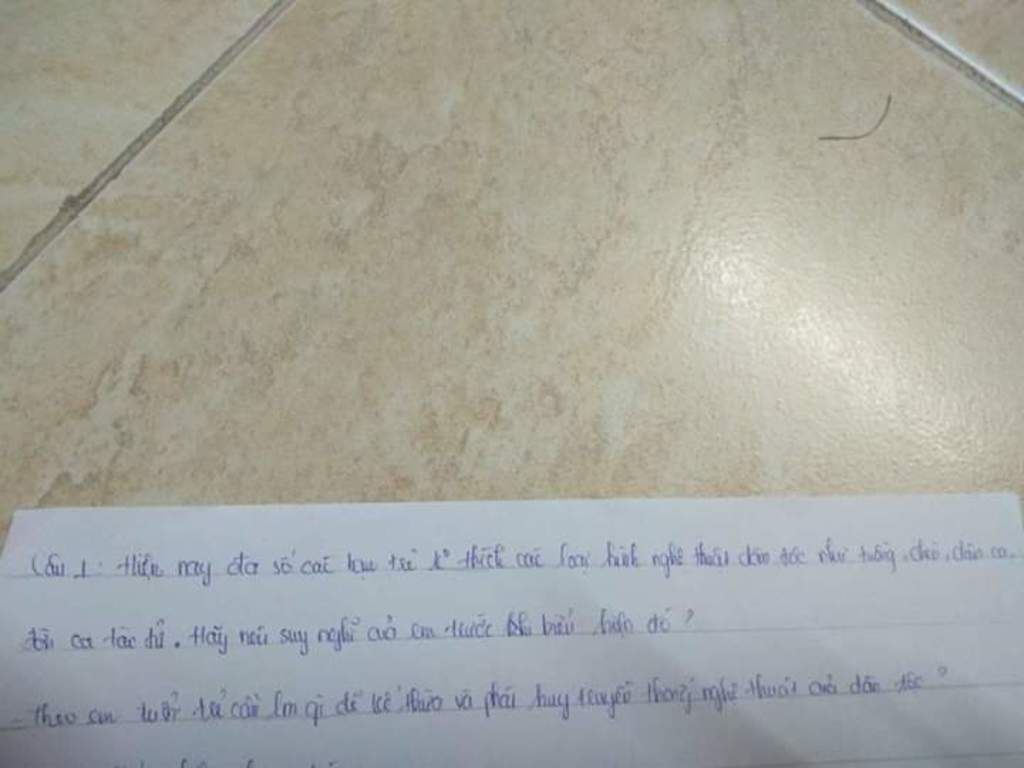 Câu 1: Hiện nay đa số các bạn trẻ k° thích các loại hình nghệ thuật dân tộc như tuồng, chèo, dân ca,
đờn ca tài tử. Hãy nêu suy nghĩ của em trước biểu hiện đó?
Theo em tuổi trẻ cần lm gì để kế thừa và phát huy truyền thống nghệ thuật của dân tộc?